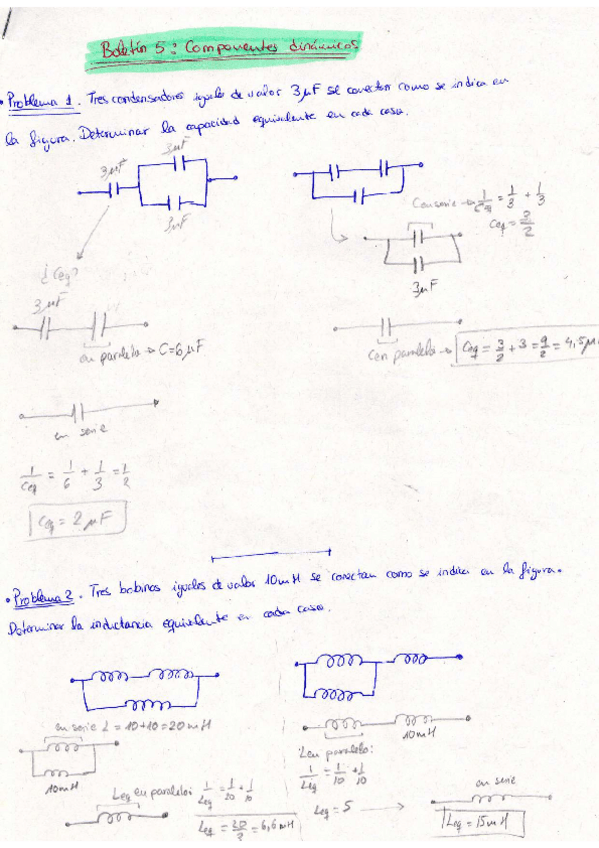 Boletín 5: Componentes dinámicos
• Problema 1. Tres condensadores iguales de valor 3μF se conectan como se indica en
la figura. Determinar la capacidad equivalente en cada caso.
3μF
3μF
3μF
Con serie → 1/Ceq = 1/3 + 1/3
Ceq = 3/2
3μF
¿Ceq?
3μF
en paralelo → C=6μF
Cen paralelo → Ceq = 3/2 + 3 = 9/2 = 4,5μ
en serie
1/Ceq = 1/6 + 1/3 = 1/2
Ceq = 2μF
• Problema 2. Tres bobinas iguales de valor 10mH se conectan como se indica en la figura.
Determinar la inductancia equivalente en cada caso.
en serie L = 10+10 = 20mH
10mH
10mH
L en paralelo:
1/Leq = 1/10 + 1/10
Leq = 5
en serie
Leq = 15mH
Leq en paralelo: 1/Leq = 1/20 + 1/10
Leq = 20/3 = 6,6mH